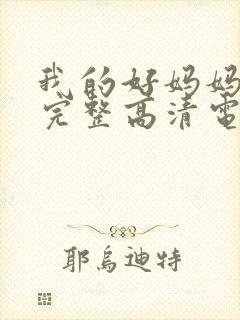 我的好妈妈
完整高清電
耶鸟迪特